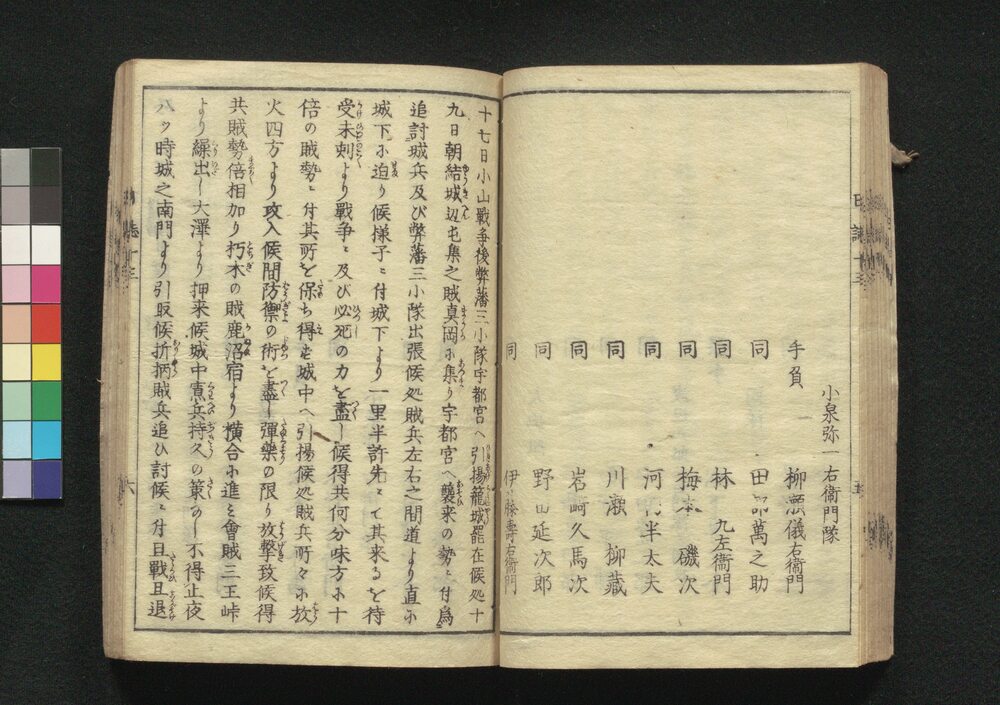 小泉弥一右衞門隊
手負 柳瀬儀右衞門
同 田部萬之助
同 林 九左衞門
同 梅本 磯次
同 河 半太夫
同 川瀬 柳藏
同 岩崎久馬次
同 野田延次郎
同 伊藤壽右衞門
十七日小山戰爭後弊藩三小隊宇都宮ヘ引揚籠城罷在候処十
九日朝結城辺屯集之賊真岡に集り宇都宮へ襲来の勢ニ付爲
追討城兵及び弊藩三小隊出張候処賊兵左右之間道より直に
城下に迫り候様子ニ付城下より一里半許先にて其来るを待
受未刻より戰爭ニ及び必死の力を盡し候得共何分味方に十
倍の賊勢ニ付其所を保ち得む城中へ引揚候処賊兵所々に放
火四方より攻入候間防禦の術を盡し彈藥の限り放撃致候得
共賊勢倍相加り朽木の賊鹿沼宿より横合に進み會賊三王峠
より繰出し大澤より押来候城中寡兵持久の策なし不得止夜
八ツ時城之南門より引取候折柄賊兵追ひ討候ニ付且戰且退
六